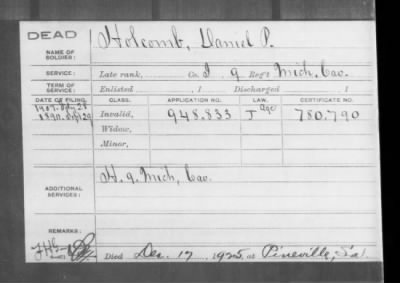 DEAD
NAME OF SOLDIER: Holcomb, Daniel P.
SERVICE: Late rank, Co. I 9 Reg't Mich. Cav.
TERM OF SERVICE: Enlisted , 1 Discharged , 1
DATE OF FILING. CLASS. APPLICATION NO. LAW. CERTIFICATE NO.
1907. 
1890. Invalid, 948.833 Age 780.790
Widow,
Minor,
ADDITIONAL SERVICES: H. 9. Mich. Cav.
REMARKS:
Died Dec. 17, 1925, at Pineville,